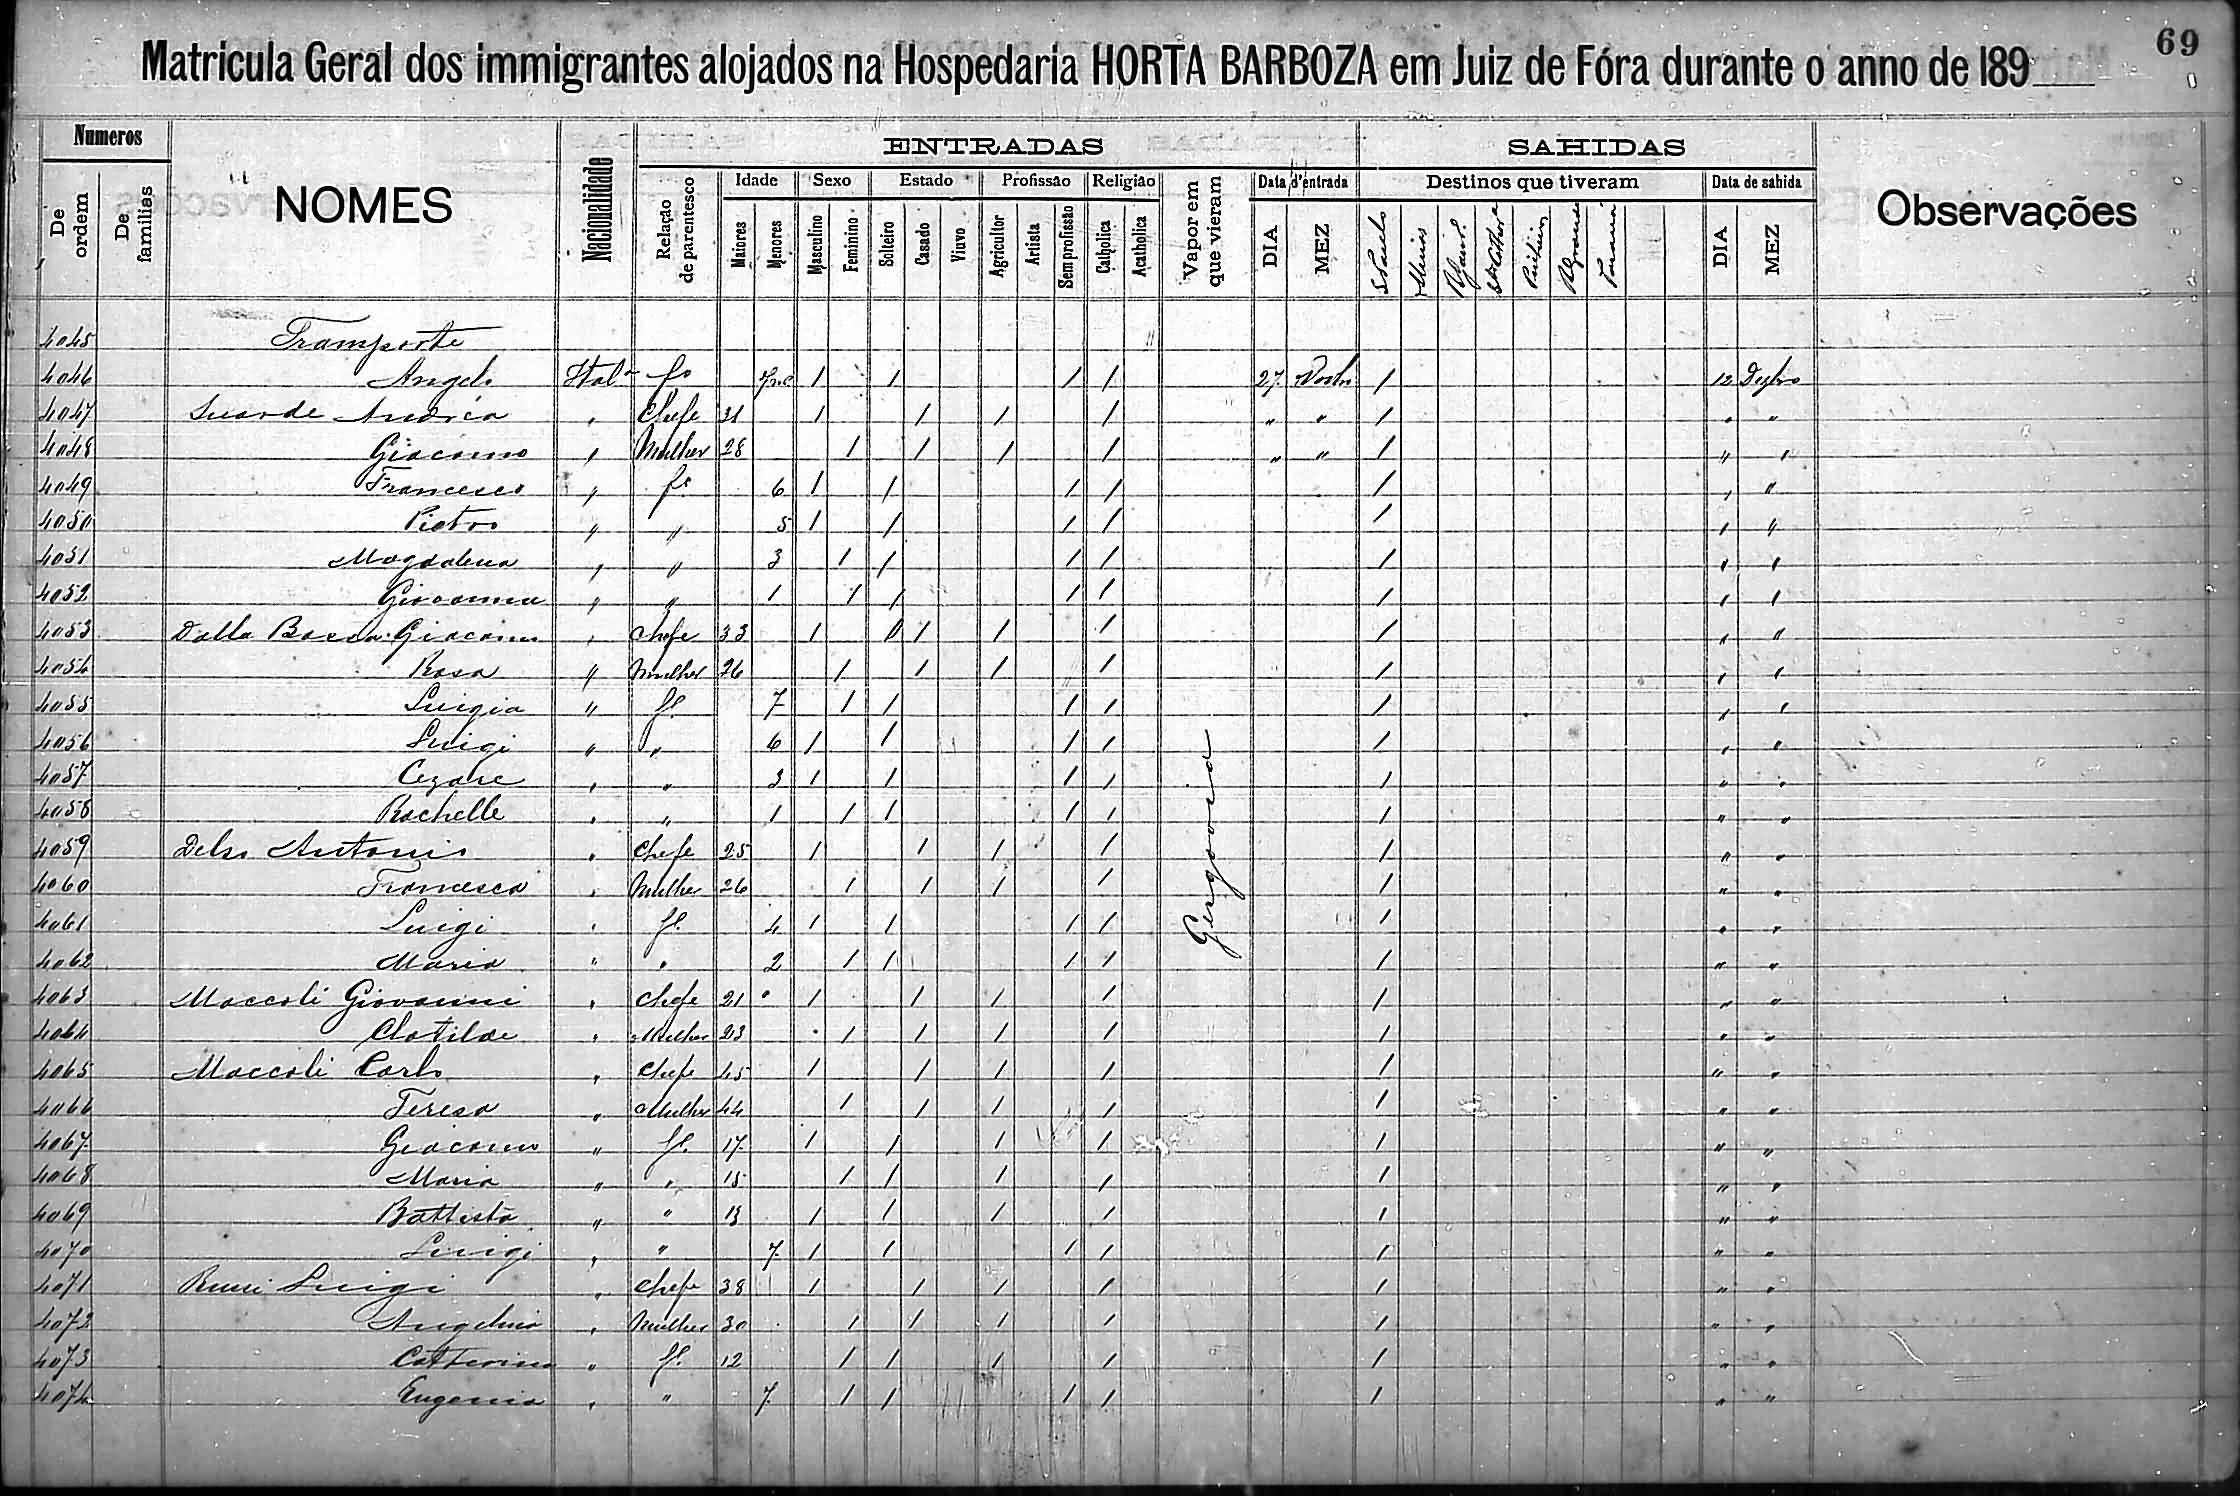 69
Matricula Geral dos immigrantes alojados na Hospedaria HORTA BARBOZA em Juiz de Fóra durante o anno de 189
Numeros NOMES Nacionalidade ENTRADAS SAHIDAS Observações
De ordem De familias Relação de parentesco Idade Sexo Estado Profissão Religião Vapor em que vieram Data d'entrada Destinos que tiveram Data de sahida
Maiores Menores Masculino Feminino Solteiro Casado Viuvo Agricultor Artista Sem profissão Catholica Acatholica DIA MEZ S Paulo Minas DIA MEZ
4045 Transporte
4046 Angelo Ital. fo 7 m 1 1 1 1 27 Novbr 1 12 Dezbro
4047 Andréa " Chefe 31 1 1 1 1 " " 1 " "
4048 Giacomo " Mulher 28 1 1 1 1 " " 1 " "
4049 Francesco " fo 6 1 1 1 1 1 " "
4050 Pietro " " 5 1 1 1 1 1 " "
4051 Magdalena " " 3 1 1 1 1 1 " "
4052 Giovanna " " 1 1 1 1 1 1 " "
4053 Dalla Bossa Giacomo " Chefe 33 1 1 1 1 1 " "
4054 Rosa " Mulher 26 1 1 1 1 1 " "
4055 Luigia " fl. 7 1 1 1 1 1 " "
4056 Luigi " " 6 1 1 1 1 1 " "
4057 Cezare " " 3 1 1 1 1 1 " "
4058 Rachelle " " 1 1 1 1 1 1 " "
4059 Antonio " Chefe 25 1 1 1 1 1 " "
4060 Francesca " Mulher 26 1 1 1 1 1 " "
4061 Luigi " fl. 4 1 1 1 1 1 " "
4062 Maria " " 2 1 1 1 1 1 " "
4063 Maccoli Giovanni " Chefe 21 1 1 1 1 1 " "
4064 Clotilde " Mulher 23 1 1 1 1 1 " "
4065 Maccoli Carlo " Chefe 45 1 1 1 1 1 " "
4066 Teresa " Mulher 44 1 1 1 1 1 " "
4067 Giacomo " fl. 17 1 1 1 1 1 " "
4068 Maria " " 15 1 1 1 1 1 " "
4069 Battista " " 13 1 1 1 1 1 " "
4070 Luigi " " 7 1 1 1 1 1 " "
4071 Luigi " Chefe 38 1 1 1 1 1 " "
4072 Angelina " Mulher 30 1 1 1 1 1 " "
4073 Catterina " fl. 12 1 1 1 1 1 " "
4074 Eugenia " " 7 1 1 1 1 1 " "